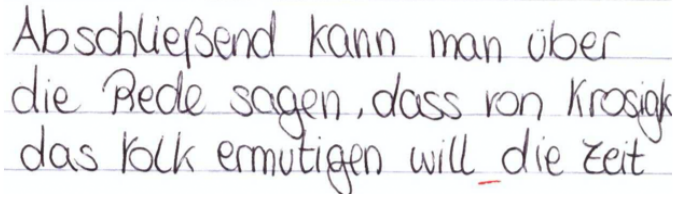 Abschließend kann man über
die Rede sagen, dass von Krosigk
das Volk ermutigen will die Zeit